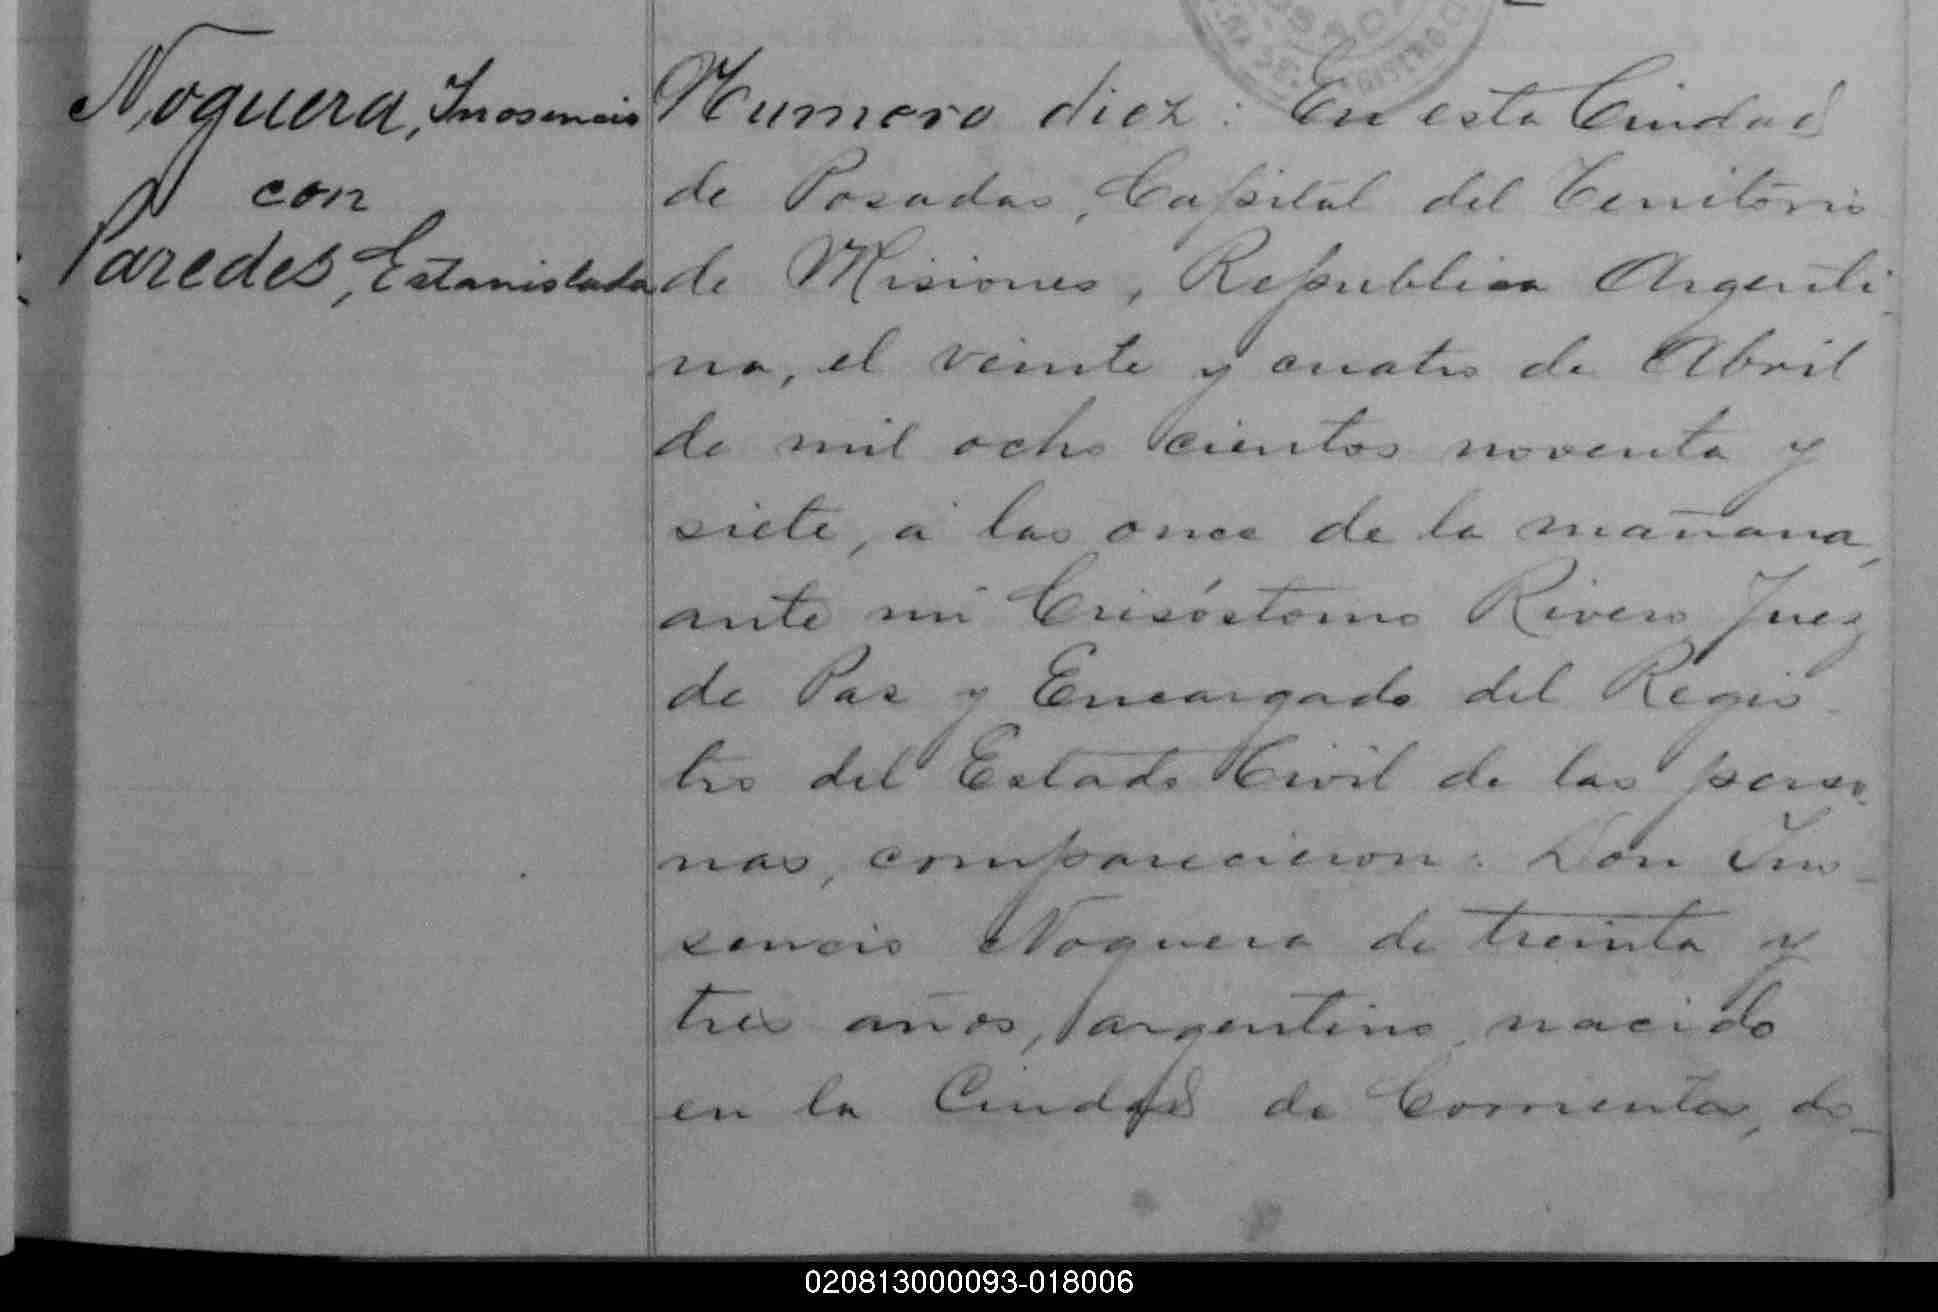 Noguera, Inosencio
con
Paredes, Estanislada
Numero diez: En esta Ciudad
de Posadas, Capital del Territorio
de Misiones, Republica Argenti-
na, el veinte y cuatro de Abril
de mil ocho cientos noventa y
siete, á las once de la mañana,
ante mí Crisóstomo Rivero Juez
de Paz y Encargado del Regis-
tro del Estado Civil de las perso-
nas, comparecieron: Don Ino-
sencio Noguera de treinta y
tres años, argentino, nacido
en la Ciudad de Corrientes, do-
020813000093-018006